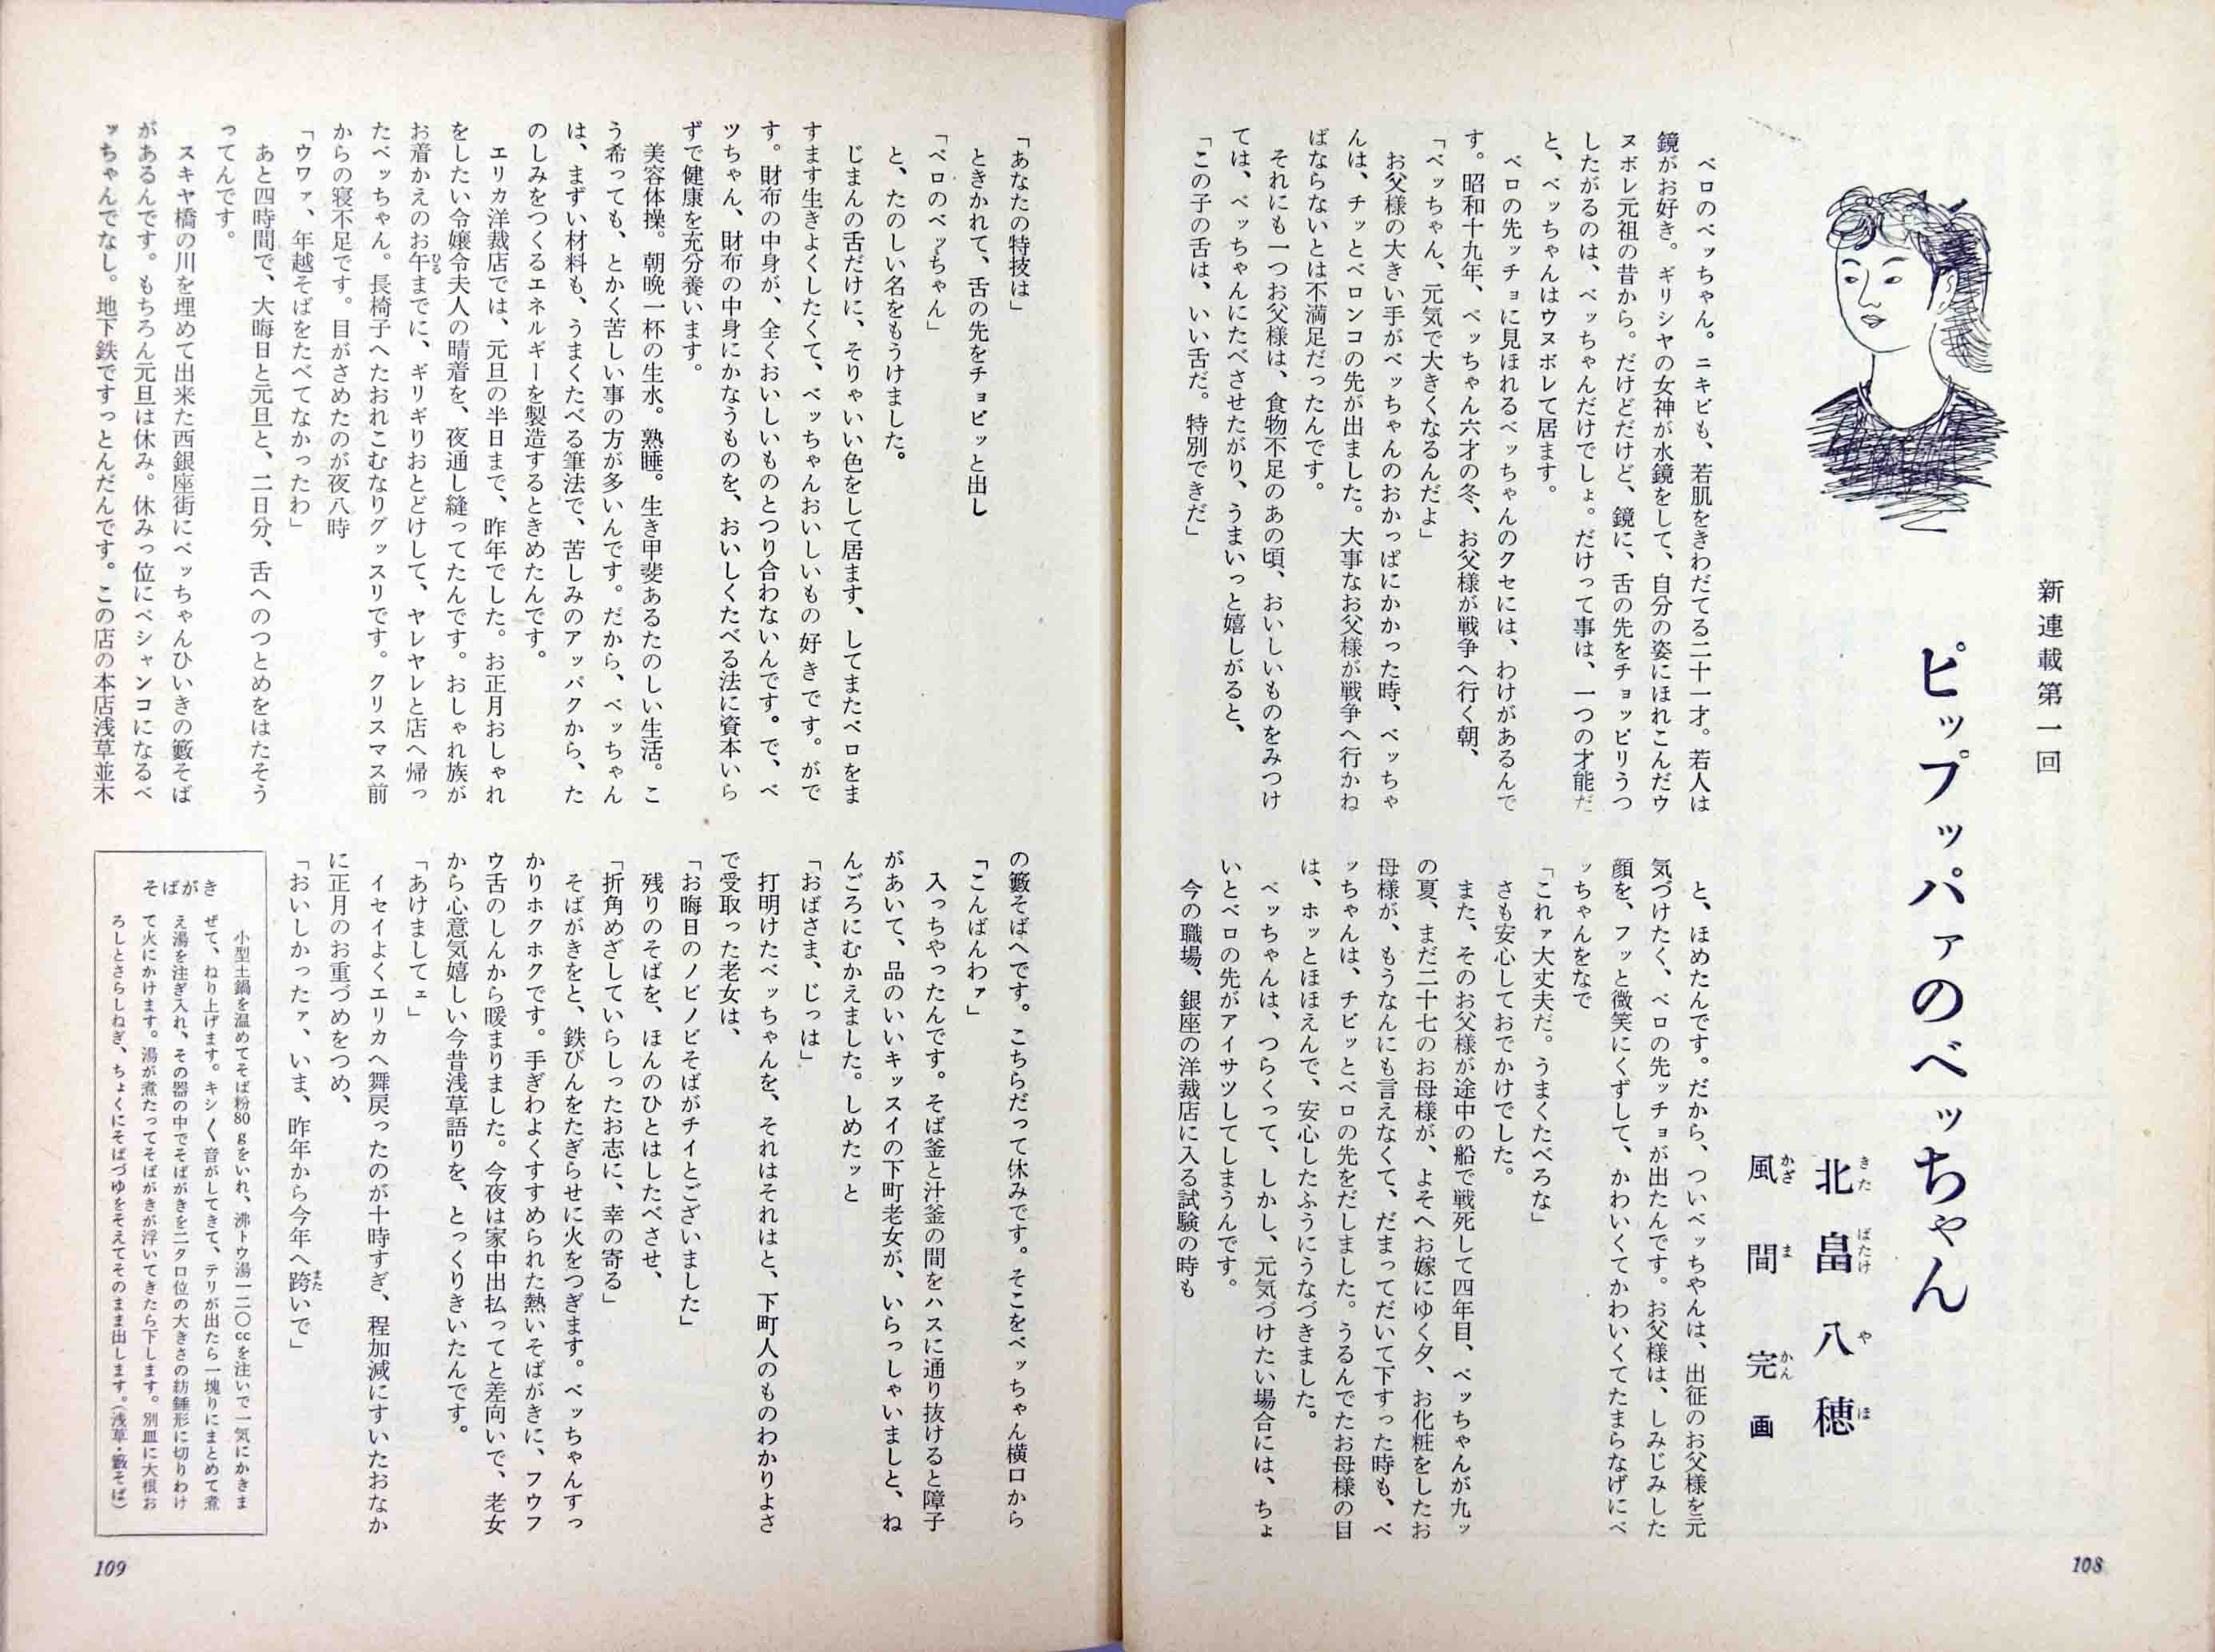 新連載第一回
ピップッパァのベッちゃん
北畠八穂
きたばたけやほ
風間完画
かざまかん
ベロのベッちゃん。ニキビも、若肌をきわだてる二十一才。若人は
鏡がお好き。ギリシヤの女神が水鏡をして、自分の姿にほれこんだウ
ヌボレ元祖の昔から。だけどだけど、鏡に、舌の先をチョッピリうつ
したがるのは、ベッちゃんだけでしょ。だけって事は、一つの才能だ
と、ベッちゃんはウヌボレて居ます。
ベロの先ッチョに見ほれるベッちゃんのクセには、わけがあるんで
す。昭和十九年、ベッちゃん六才の冬、お父様が戦争へ行く朝、
「ベッちゃん、元気で大きくなるんだよ」
お父様の大きい手がベッちゃんのおかっぱにかかった時、ベッちゃ
んは、チッとベロンコの先が出ました。大事なお父様が戦争へ行かね
ばならないとは不満足だったんです。
それにも一つお父様は、食物不足のあの頃、おいしいものをみつけ
ては、ベッちゃんにたべさせたがり、うまいっと嬉しがると、
「この子の舌は、いい舌だ。特別できだ」
と、ほめたんです。だから、ついベッちやんは、出征のお父様を元
気づけたく、ベロの先ッチョが出たんです。お父様は、しみじみした
顔を、フッと微笑にくずして、かわいくてかわいくてたまらなげにベ
ッちゃんをなで
「これァ大丈夫だ。うまくたべろな」
さも安心しておでかけでした。
また、そのお父様が途中の船で戦死して四年目、ベッちゃんが九ッ
の夏、まだ二十七のお母様が、よそへお嫁にゆく夕、お化粧をしたお
母様が、もうなんにも言えなくて、だまってだいて下すった時も、ベ
ッちゃんは、チビッとベロの先をだしました。うるんでたお母様の目
は、ホッとほほえんで、安心したふうにうなづきました。
ベッちゃんは、つらくって、しかし、元気づけたい場合には、ちょ
いとベロの先がアイサツしてしまうんです。
今の職場、銀座の洋裁店に入る試験の時も
108
「あなたの特技は」
ときかれて、舌の先をチョビッと出し
「ベロのベッちゃん」
と、たのしい名をもうけました。
じまんの舌だけに、そりゃいい色をして居ます、してまたベロをま
すます生きよくしたくて、ベッちゃんおいしいもの好きです。がで
す。財布の中身が、全くおいしいものとつり合わないんです。で、ベ
ッちゃん、財布の中身にかなうものを、おいしくたべる法に資本いら
ずで健康を充分養います。
美容体操。朝晩一杯の生水。熟睡。生き甲斐あるたのしい生活。こ
う希っても、とかく苦しい事の方が多いんです。だから、ベッちゃん
は、まずい材料も、うまくたべる筆法で、苦しみのアッパクから、た
のしみをつくるエネルギーを製造するときめたんです。
エリカ洋裁店では、元旦の半日まで、昨年でした。お正月おしゃれ
をしたい令嬢令夫人の晴着を、夜通し縫ってたんです。おしゃれ族が
お着かえのお午までに、ギリギリおとどけして、ヤレヤレと店へ帰っ
ひる
たベッちゃん。長椅子へたおれこむなりグッスリです。クリスマス前
からの寝不足です。目がさめたのが夜八時
「ウワァ、年越そばをたべてなかったわ」
あと四時間で、大晦日と元旦と、二日分、舌へのつとめをはたそう
ってんです。
スキヤ橋の川を埋めて出来た西銀座街にベッちゃんひいきの籔そば
があるんです。もちろん元旦は休み。休みっ位にペシャンコになるベ
ッちゃんでなし。地下鉄ですっとんだんです。この店の本店浅草並木
の籔そばへです。こちらだって休みです。そこをベッちゃん横口から
「こんばんわァ」
入っちやったんです。そば釜と汁釜の間をハスに通り抜けると障子
があいて、品のいいキッスイの下町老女が、いらっしゃいましと、ね
んごろにむかえました。しめたッと
「おばさま、じっは」
打明けたベッちゃんを、それはそれはと、下町人のものわかりよさ
で受取った老女は、
「お晦日のノビノビそばがチイとございました」
残りのそばを、ほんのひとはしたべさせ、
「折角めざしていらしったお志に、幸の寄る」
そばがきをと、鉄びんをたぎらせに火をつぎます。ベッちゃんすっ
かりホクホクです。手ぎわよくすすめられた熱いそばがきに、フウフ
ウ舌のしんから暖まりました。今夜は家中出払ってと差向いで、老女
から心意気嬉しい今昔浅草語りを、とっくりきいたんです。
「あけましてェ」
イセイよくエリカへ舞戻ったのが十時すぎ、程加減にすいたおなか
に正月のお重づめをつめ、
「おいしかったァ、いま、昨年から今年へ跨いで」
また
そばがき
小型土鍋を温めてそば粉80gをいれ、沸トウ湯一二〇ccを注いで一気にかきま
ぜて、ねり上げます。キシ〱音がしてきて、テリが出たら一塊りにまとめて煮
え湯を注ぎ入れ、その器の中でそばがきを二タ口位の大きさの紡錘形に切りわけ
て火にかけます。湯が煮たってそばがきが浮いてきたら下します。別皿に大根お
ろしとさらしねぎ、ちょくにそばづゆをそえてそのまま出します。（浅草・籔そば）
109